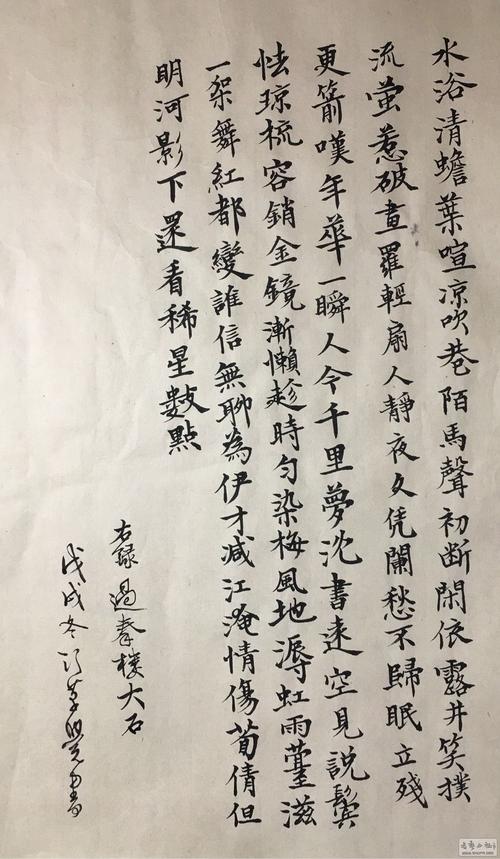 水浴清蟾葉喧凉吹巷陌馬聲初断閑依露井笑撲
流萤惹破畫羅輕扇人靜夜久凭闌愁不歸眠立残
更箭嘆年華一瞬人今千里夢沈書遠空見説鬢
怯琼梳容銷金鏡漸懶趂時匀染梅風地溽虹雨薹滋
一架舞紅都變誰信無聊為伊才减江淹情傷荀倩但
明河影下還看稀星數點
右録過秦樓大石
戊戌冬書